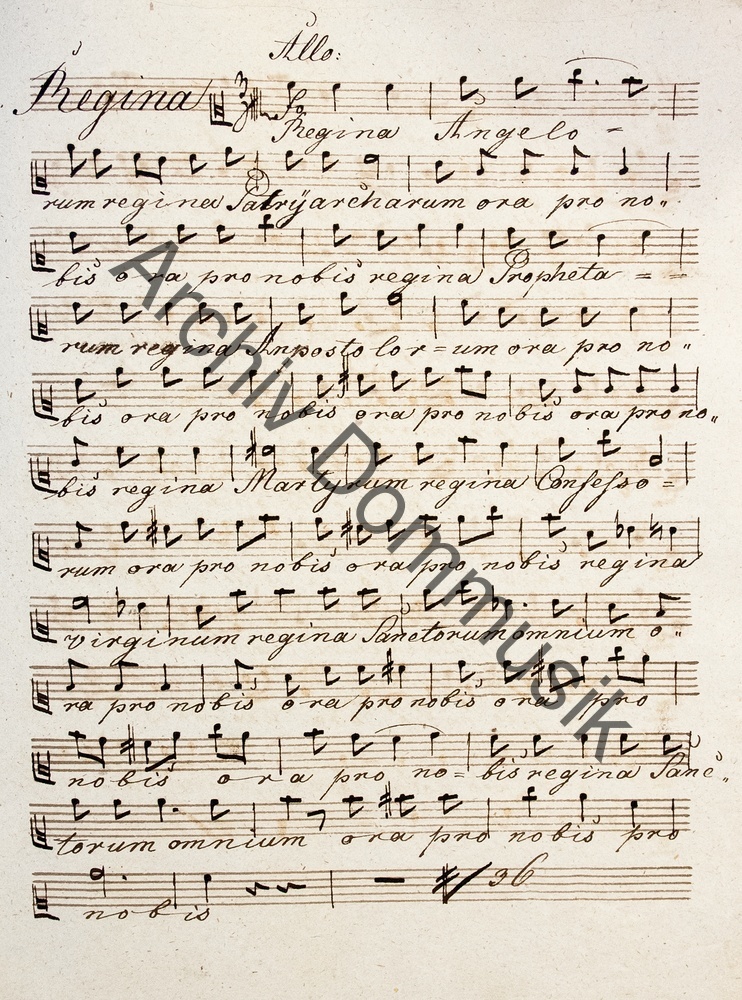 Allo:
Regina
Regina Angelo =
rum regina Patryarcharum ora pro no„
bis ora pro nobis regina Propheta = =
rum regina Anpostolor=um ora pro no„
bis ora pro nobis ora pro nobis ora pro no„
bis regina Martyrum regina Confesso =
rum ora pro nobis ora pro nobis regina
virginum regina Sanctorum omnium o„
ra pro nobis ora pro nobis ora pro
nobis ora pro no= bis regina Sanc„
torum omnium ora pro nobis pro
nobis
36
Archiv Dommusik